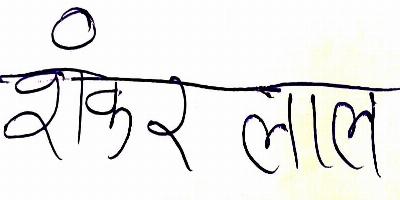 शंकर लाल